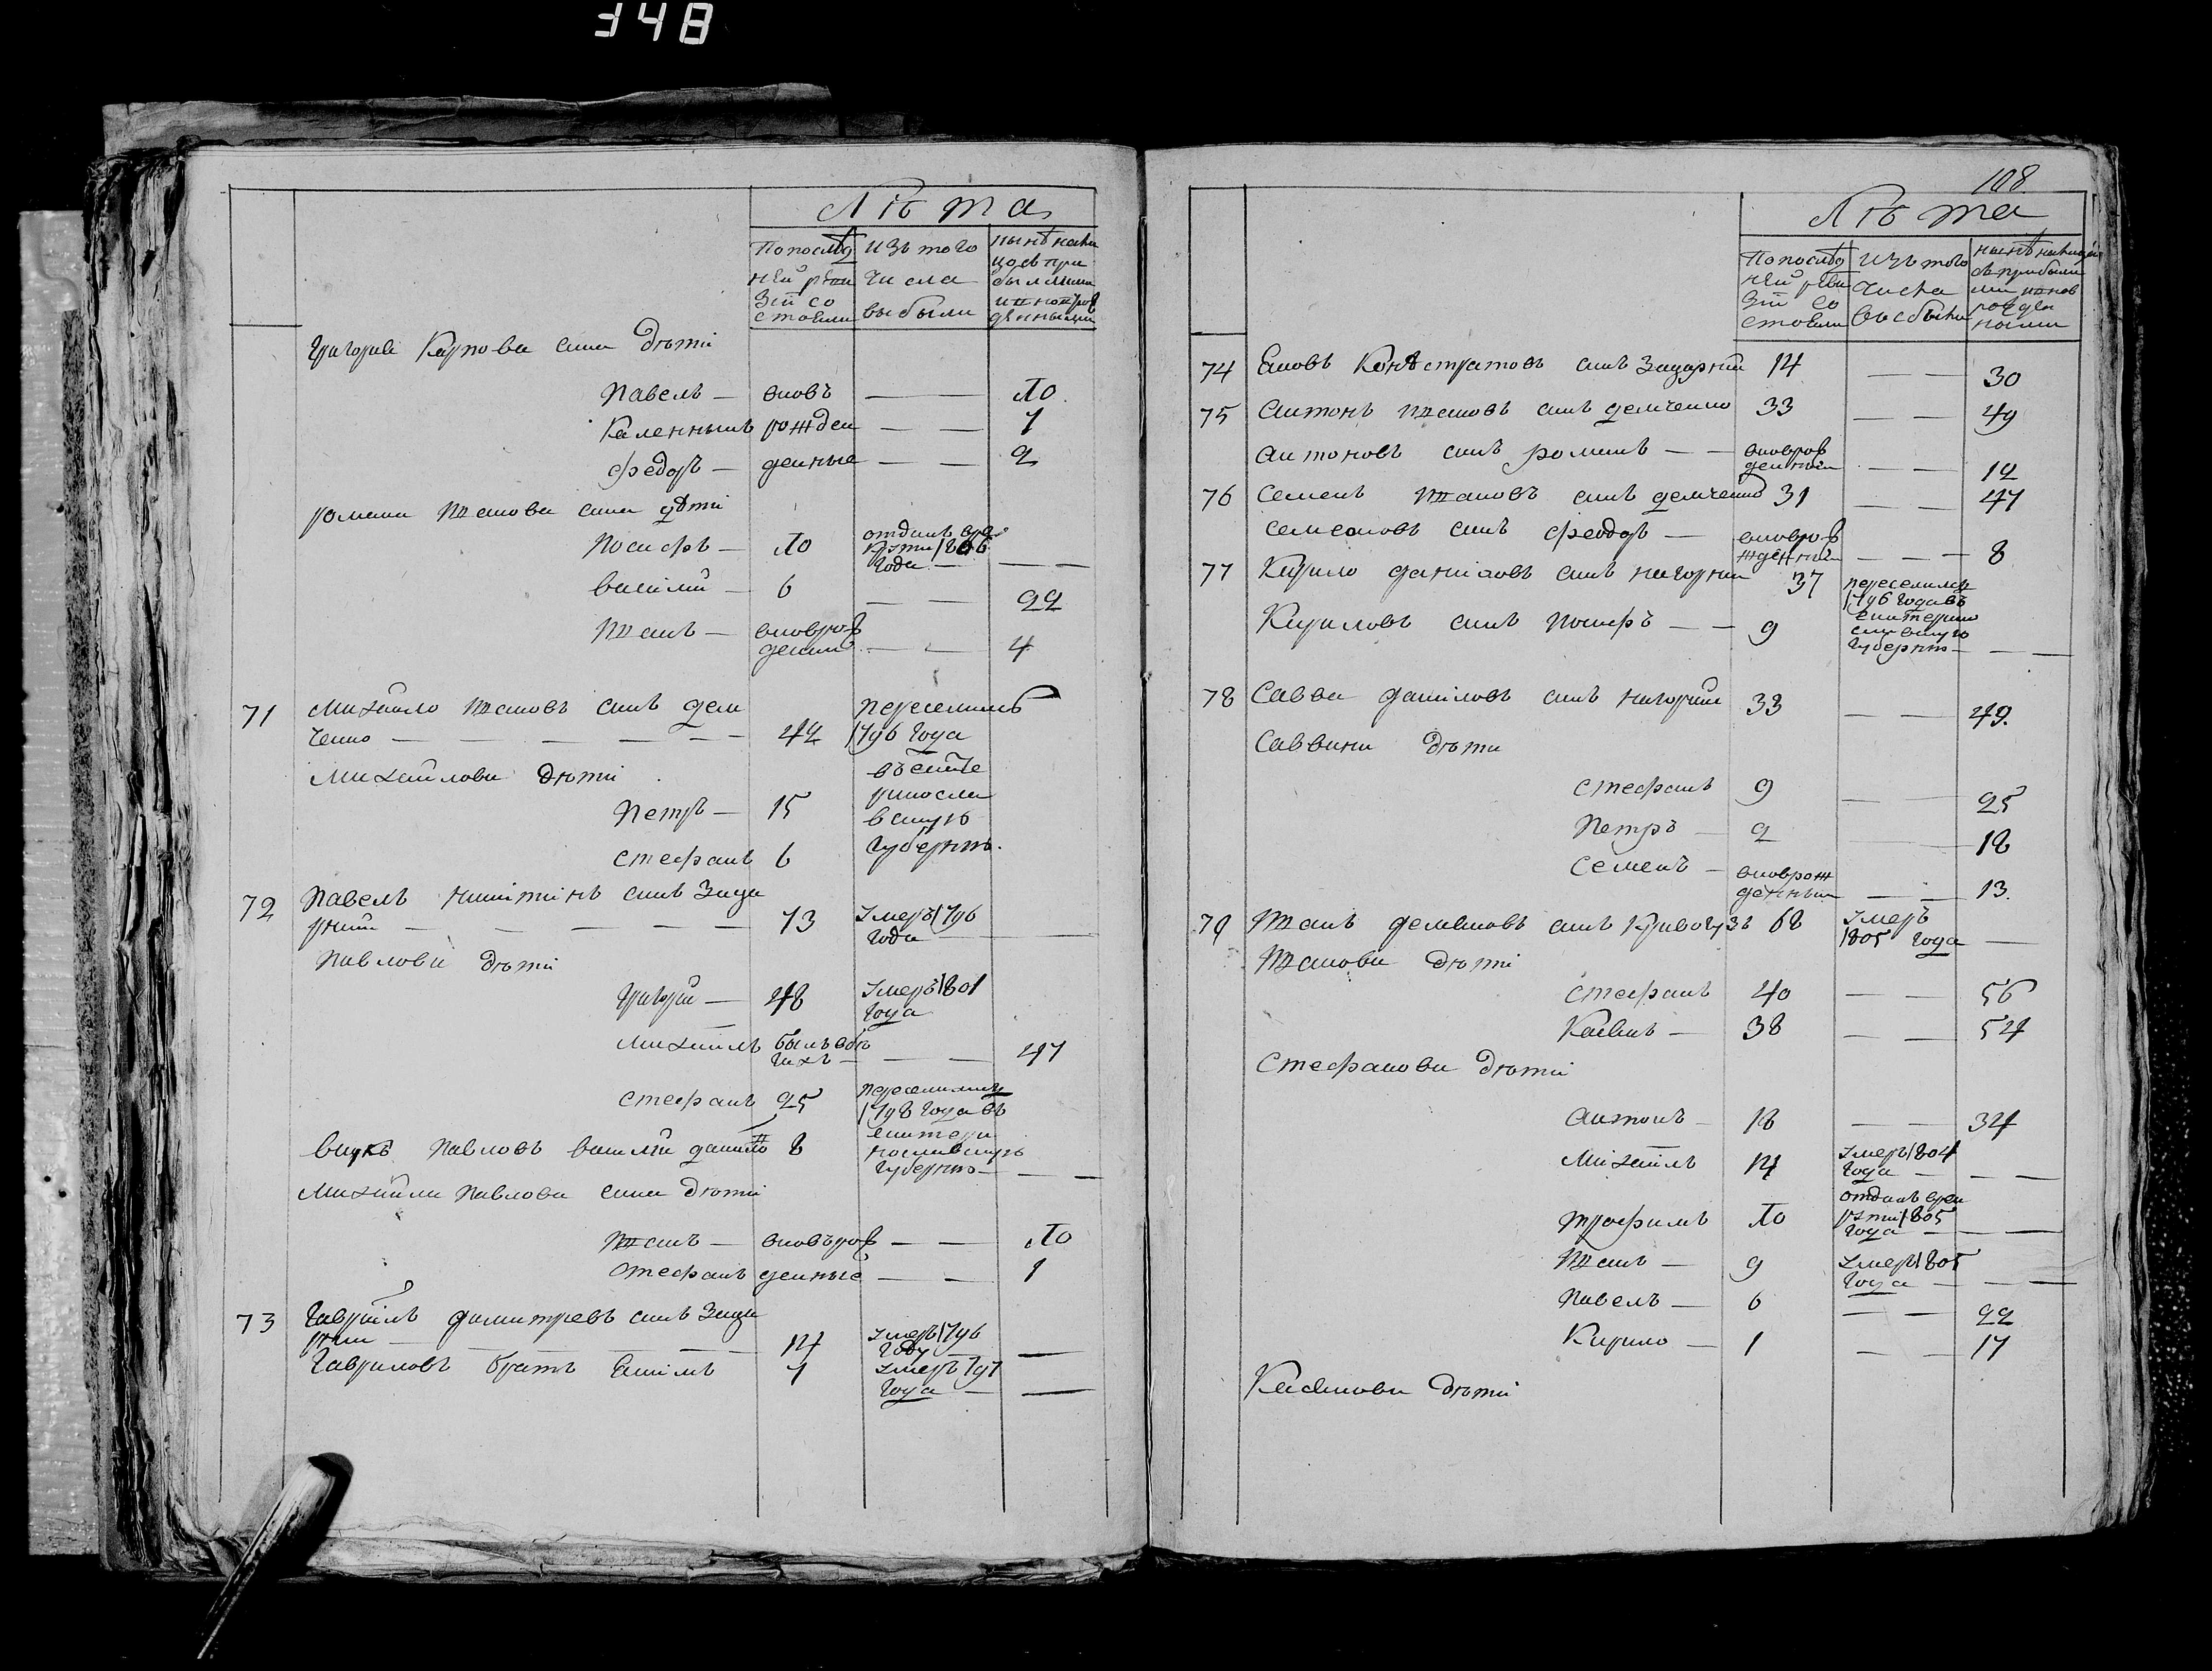 348
Лѣта
По послѣд
ней реви
зіи со
стояли
изъ того
числа
выбыли
Григорія Карпова сина дѣти
Павелъ — вновь — — 10
рожден — — 1
Федоръ — денные — — 2
Романа Иванова сина дѣти
Иосифъ — 10 отданъ в ре
круты 1806
года — — —
Василій — 6 — — 22
Иванъ — вновро
— — 4
71 Михайло Ивановъ синъ Дем
ченко — — — — — 42
переселился
1796 года
въ Екате
риносла
вскую
губернію.
Михайлови дѣти
Петръ — 15
Стефанъ 6
72 Павелъ Никитинъ синъ Заца
рний — — — — — 73 Умеръ 1796
года — —
Павлови дѣти
Григорій — 48 Умеръ 1801
года
Михаилъ былъ въ бѣ
гахъ — — — 47
Стефанъ 25 переселился
1798 года въ
Екатери
нославскую
губернію — — —
Внукъ Павловъ Василій 8
Михайли Павлова сина дѣти
Иванъ — вновьро — — 10
Стефанъ денные — — 1
73 Гаврііилъ Димитревъ синъ Заца
рний — — — — 14 Умеръ 1796
году — —
Гавриловъ братъ 1 Умеръ 797
года — —
108
Лѣта
По послѣд
ней реви
зіи со
стояли
изъ того
числа
выбыли
74 синъ Зацарній 14 — — 30
75 Антонъ Ивановъ синъ Демченко 33 — — 49
Антоновъ синъ Романъ — — вновро
— — 12
76 Семенъ Ивановъ синъ Демченко 31 — — 47
синъ Феодоръ — вновро
жденній — — — 8
77 Кирило Даниловъ синъ Нагорний 37 переселился
1796 года въ
Екатерино
славскую
губернію — — —
Кириловъ синъ Иосифъ — — 9
78 Савва Даниловъ синъ Нагорний 33 — — 49.
Саввини дѣти
Стефанъ 9 — — 25
Петръ — 2 — — 18
Семенъ — вноврож
денный — — 13.
79 Иванъ синъ Кривогузъ 68 Умеръ
1805 года —
Иванови дѣти
Стефанъ 40 — — 56
38 — — 54
Стефанови дѣти
Антонъ — 18 — — 34
Михаилъ 14 Умеръ 1804
года — — —
Трофимъ 10 отданъ в рек
руты 1805
года — — —
Иванъ — 9 Умеръ 1805
года — — —
Павелъ — 6 — — 22
Кирило — 1 — — 17
дѣти